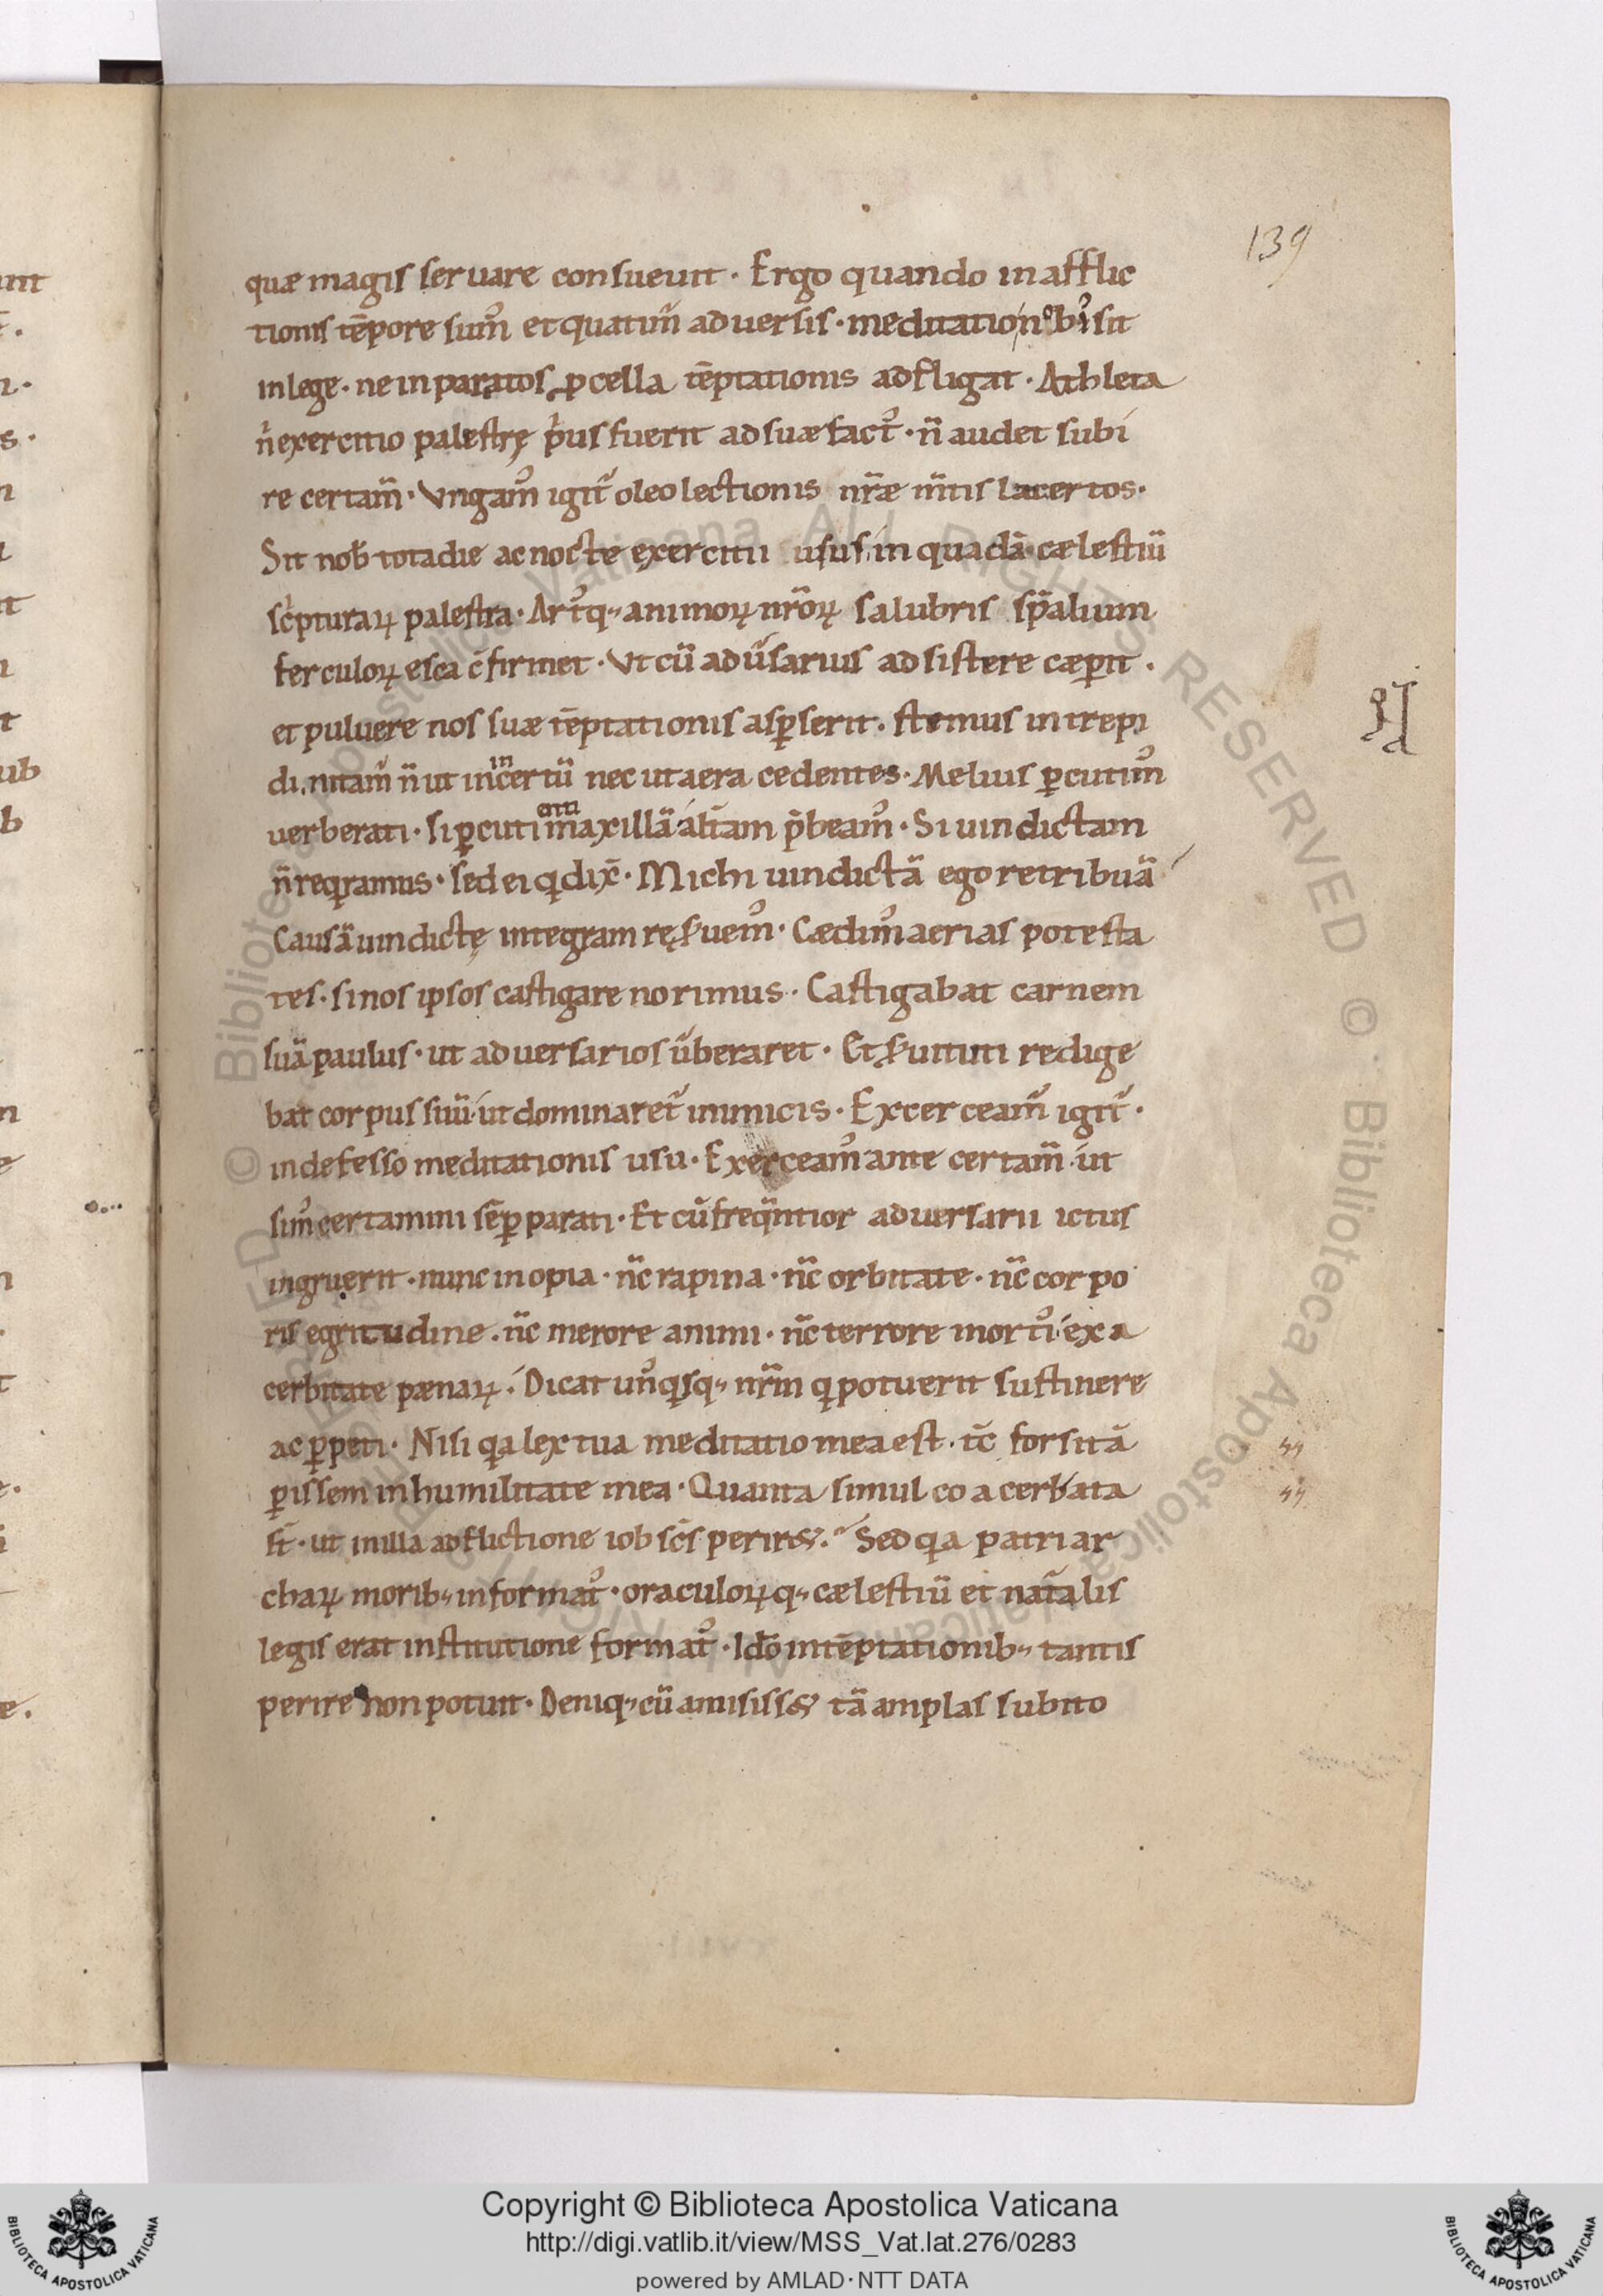 139
quæ magis seruare consueuit · Ergo quando in afflic
tionis tēpore sumꝰ et quatimᷣ aduersis · meditatio nobis sit
in lege · ne inparatos ꝓcella tēptationis adfligat · Athleta
n̄ exercitio palestrę pͥus fuerit adsuæfactꝰ · n̄ audet subi
re certam̄ · Vngamꝰ igitᷣ oleo lectionis nr̄æ m̄tis lacertos ·
Sit nob̄ tota die ac nocte exercitii usus in quadā cælestiū
scͥpturaꝝ palestra · Artꝰq; animoꝝ nr̄oꝝ salubris sp̄alium
ferculoꝝ esca c̄firmet · Vt cū adūsarius adsistere cæꝑit ·
et puluere nos suæ tēptationis asꝑserit · stemus intrepi
di, nitamᷣ n̄ ut in incertū nec ut aera cedentes · Melius ꝑcutimꝰ
uerberati · si ꝑcutienti maxillā alt̄am p̄beamꝰ · Si uindictam
n̄ reqͥramus · sed ei qͥ dix̄ · Michi uindictā ego retribuā
Causā uindictę integram ręẜuemꝰ · Cædimꝰ aerias potesta
tes · si nos ipsos castigare norimus · Castigabat carnem
suā paulus · ut aduersarios ūberaret · Et ẜuituti redige
bat corpus suū ut dominaretᷣ inimicis · Excerceamᷣ igitᷣ ·
indefesso meditationis usu · Exerceamꝰ ante certam̄ ut
simꝰ certamini sēꝑ parati · Et cū freqͣntior aduersarii ictus
ingruerit · nunc inopia · nc̄ rapina · nc̄ orbitate · nc̄ corpo
ris egritudine · nc̄ merore animi · nc̄ terrore mortꝰ ex a
cerbitate pænaꝝ · Dicat unꝰqͥsq; nr̄m qͥ potuerit sustinere
ac ꝑpeti · Nisi qͥa lex tua meditatio mea est · tc̄ forsitā
ꝑissem in humilitate mea · Quanta simul coacerbata
st̄ · ut in illa adflictione iob sc̄s perir& · Sed qͥa patriar
chaꝝ morib; informatꝰ · oraculoꝝq; cælestiū et nat̄alis
legis erat institutione formatꝰ · Idō in tēptationib; tantis
perire non potuit · Deniq; cū amisiss& tā amplas subito
Copyright © Biblioteca Apostolica Vaticana
http://digi.vatlib.it/view/MSS_Vat.lat.276/0283
powered by AMLAD·NTT DATA